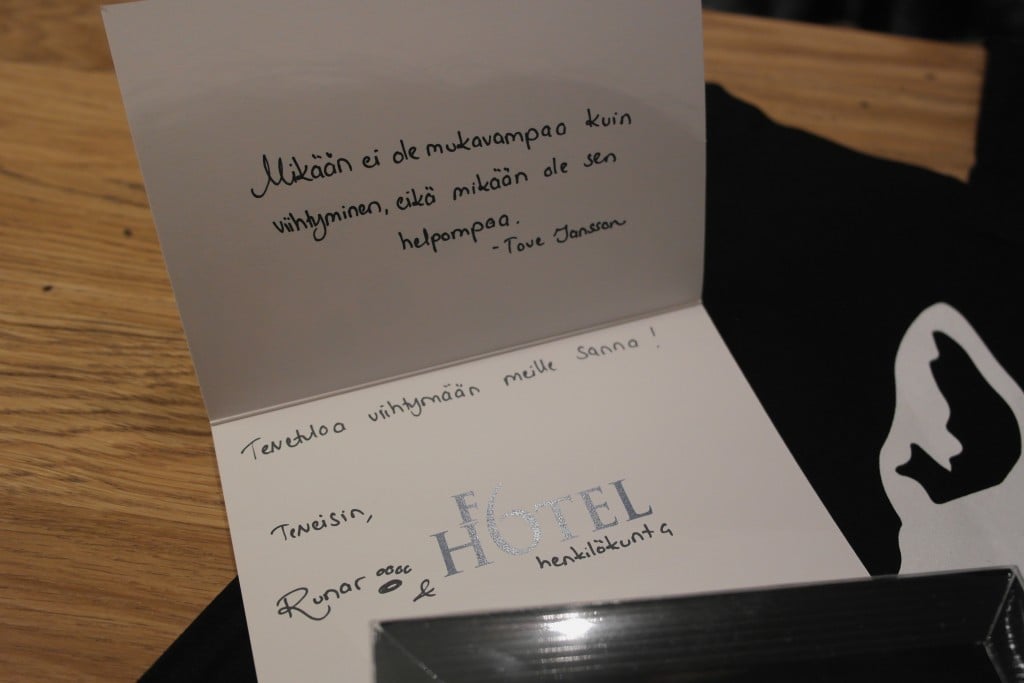 Mikään ei ole mukavampaa kuin
viihtyminen, eikä mikään ole sen
helpompaa.
-Tove Jansson
Tervetuloa viihtymään meille Sanna!
Terveisin,
F6
HOTEL
Runar & henkilökunta